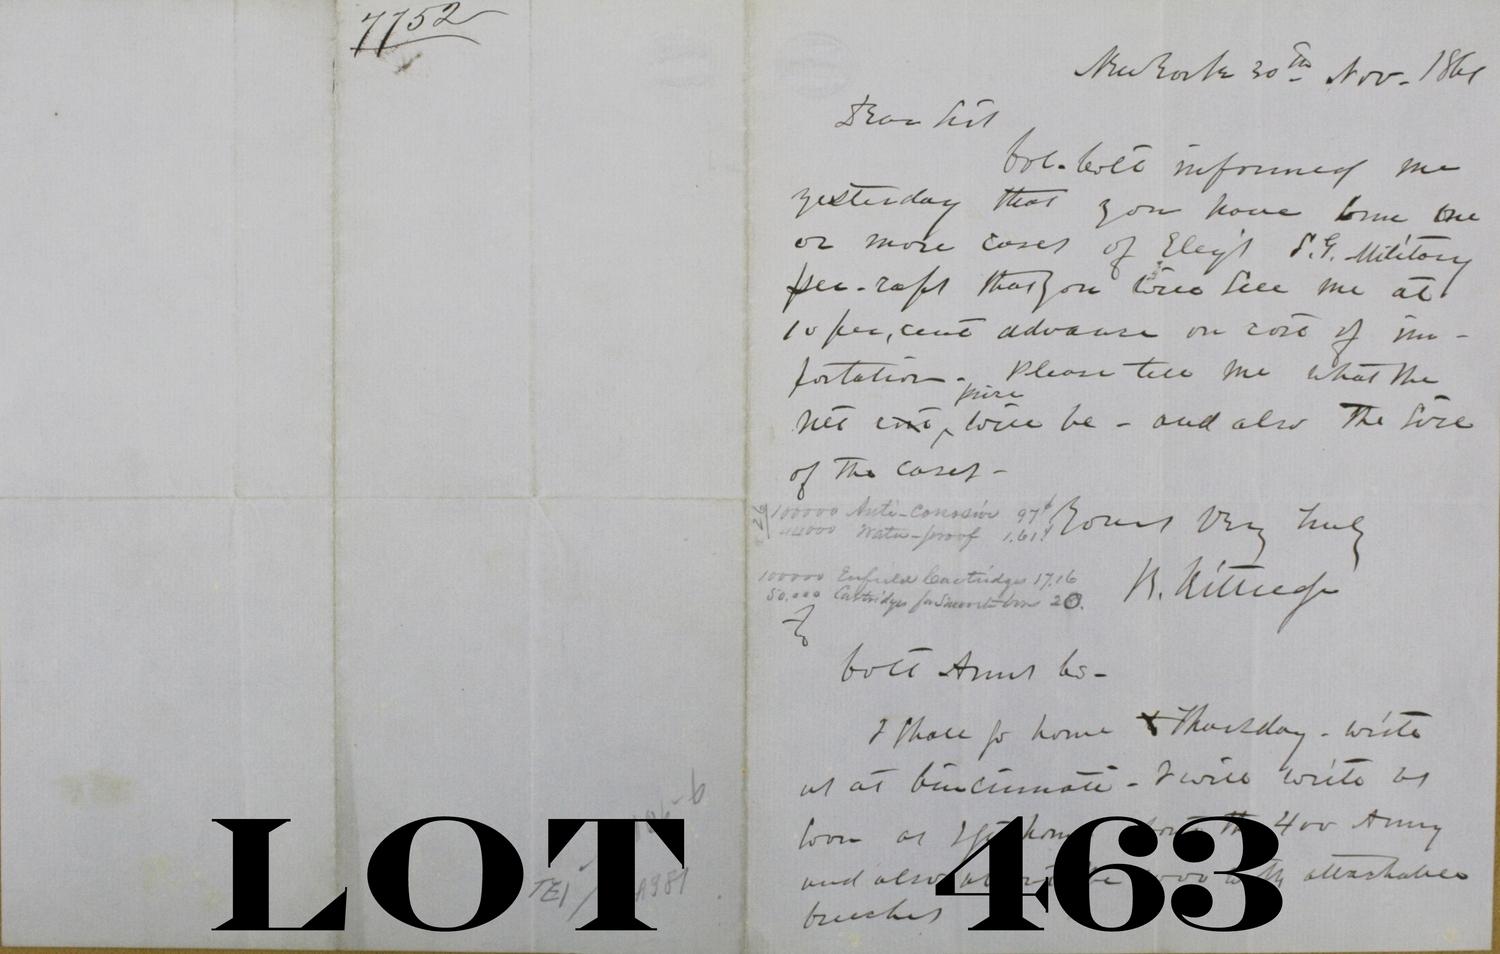 7752
New York 30th Nov. 1861
Dear Sir
Col. Colt informed me
yesterday that you have some one
or more cases of Eley's S.G. Military
per-caps that you will sell me at
10 per, cent advance on cost of im-
portation. Please tell me what the
net cost price will be - and also the size
of the cases -
100000 Anti-corrosive 97¢
Water-proof 1.61
Yours Very Truly
100000 Enfield Cartridges 17.16
50.000 Cartridges for Smooth bore 20.
B. Kittredge
To
Colt Arms Co-
I shall go home Thursday - write
us at Cincinnati - I will write as
soon as I get home about the 400 Army
and also about the 1000 with attachable
breeches
TEI / A981
LOT 463